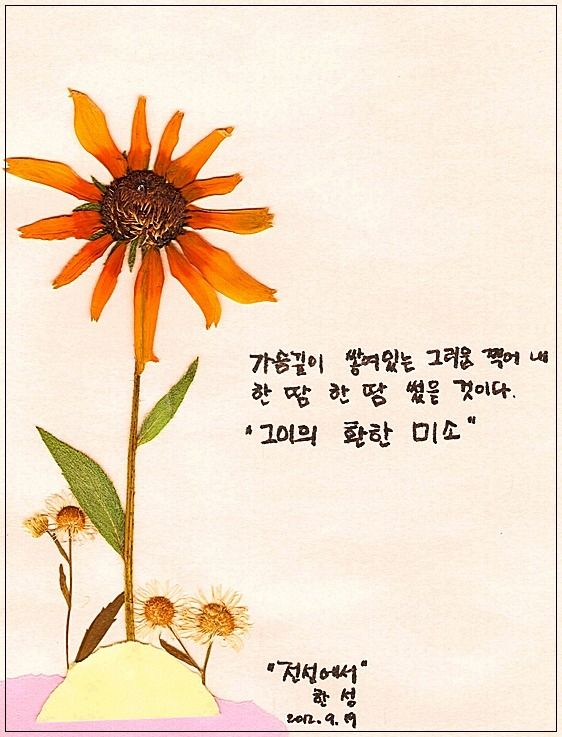 가슴깊이 쌓여있는 그리움 찍어 내
한 땀 한 땀 썼을 것이다.
"그이의 환한 미소"
"전선에서"
한 성
2012.9.19